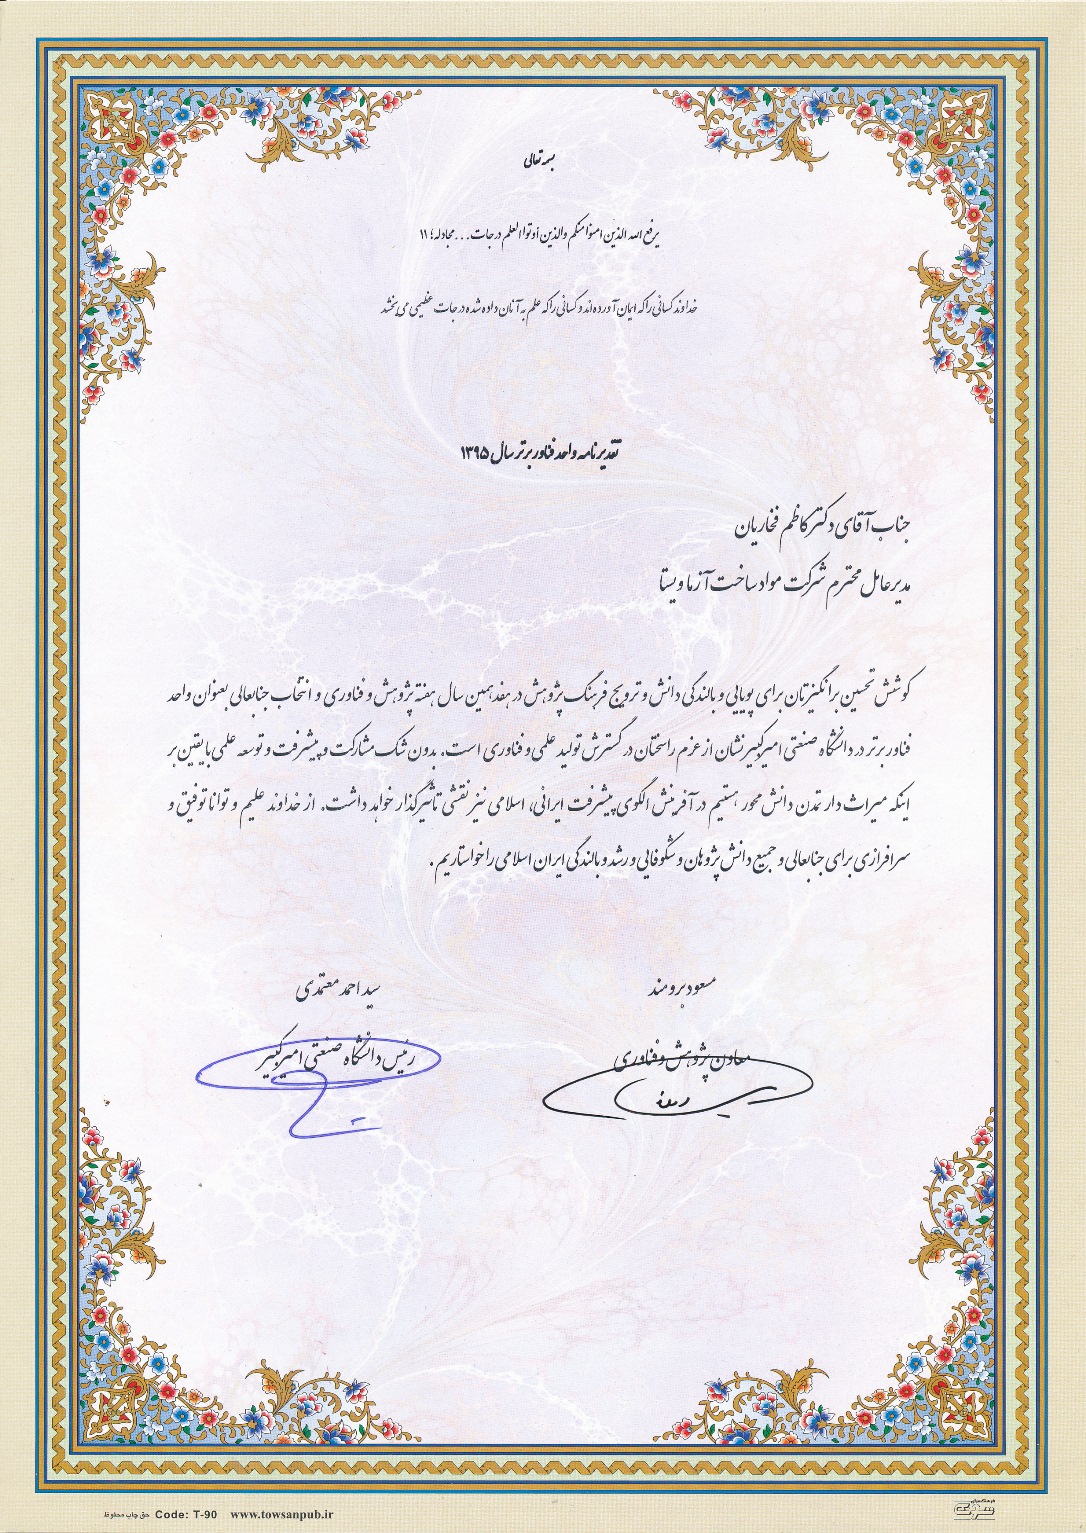 بسمه تعالی
یرفع الله الذین امنوا منکم والذین أوتوا العلم درجات... مجادله؛ ۱۱
خداوند کسانی را که ایمان آورده اند و کسانی را که علم به آنان داده شده درجات عظیمی می بخشد
تقدیرنامه واحد فناور برتر سال ۱۳۹۵
جناب آقای دکتر کاظم فخاریان
مدیرعامل محترم شرکت مواد ساخت آزما ویستا
کوشش تحسین برانگیزتان برای پویایی و بالندگی دانش و ترویج فرهنگ پژوهش در هفدهمین سال هفته پژوهش و فناوری و انتخاب جنابعالی بعنوان واحد
فناور برتر در دانشگاه صنعتی امیرکبیر نشان از عزم راسختان در گسترش تولید علمی و فناوری است. بدون شک مشارکت و پیشرفت و توسعه علمی با یقین بر
اینکه میراث دار تمدن دانش محور هستیم در آفرینش الگوی پیشرفت ایرانی، اسلامی نیز نقشی تأثیرگذار خواهد داشت. از خداوند علیم و توانا توفیق و
سرافرازی برای جنابعالی و جمیع دانش پژوهان و شکوفایی و رشد و بالندگی ایران اسلامی را خواستاریم.
مسعود برومند
معاون پژوهش و فناوری
سید احمد معتمدی
رئیس دانشگاه صنعتی امیرکبیر
حق چاپ محفوظ Code: T-90 www.towsanpub.ir